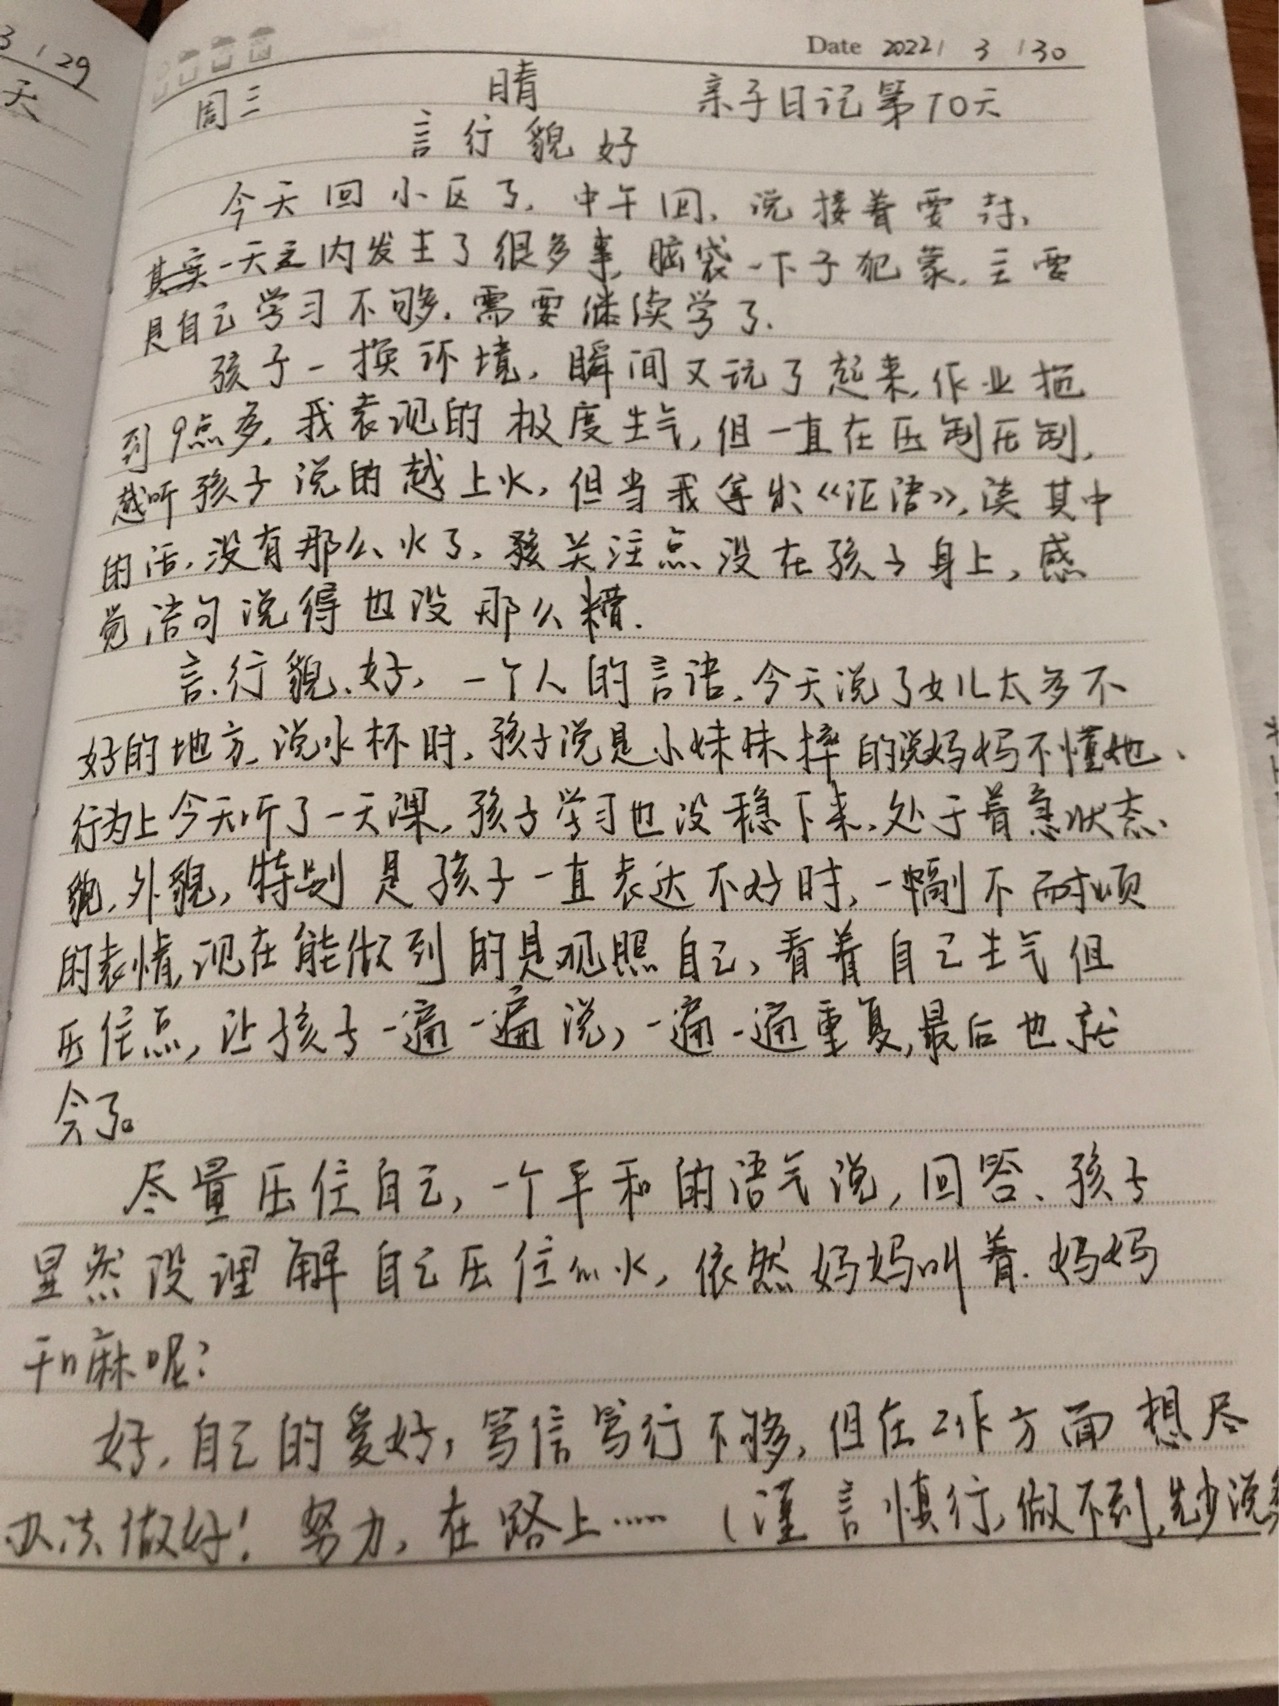 3 / 29
天
Date 2022 / 3 / 30
周三 晴 亲子日记第10天
言行貌好
今天回小区了,中午回,说接着要封,
其实一天之内发生了很多事,脑袋一下子犯蒙,主要
是自己学习不够,需要继续学了.
孩子一换环境,瞬间又玩了起来,作业拖
到9点多,我表现的极度生气,但一直在压制压制,
越听孩子说的越上火,但当我拿出《论语》,读其中
的话,没有那么火了,孩关注点没在孩子身上,感
觉语句说得也没那么糟.
言、行、貌、好,一个人的言语,今天说了女儿太多不
好的地方,说水杯时,孩子说是小妹妹摔的说妈妈不懂她、
行为上今天听了一天课,孩子学习也没稳下来,处于着急状态.
貌,外貌,特别是孩子一直表达不好时,一幅不耐烦
的表情,现在能做到的是观照自己,看着自己生气但
压住点,让孩子一遍一遍说,一遍一遍重复,最后也就
会了。
尽量压住自己,一个平和的语气说,回答、孩子
显然没理解自己压住的火,依然妈妈叫着.妈妈
干嘛呢?
好,自己的爱好,笃信笃行不够,但在工作方面想尽
办法做好!努力,在路上……(谨言慎行,做不到,先少说